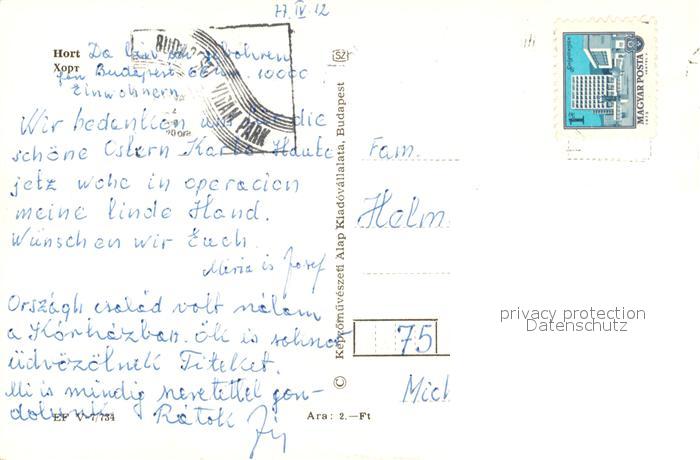 77. IV. 12
Hort Da bin ich gebohren
Хорт fon Budapest 66 km. 10000
Einwohnern
BUDA
VIDÁM PARK
Wir bedanken uns für die
schöne Ostern Karte Haute
jetz wohe in operacion
meine linde Hand.
Wünschen wir Euch.
Mária is Josef
Országh család volt nálam
a Kórházban. Ők is sokszor
üdvözölnek Titeket.
Mi is mindig szeretettel gon-
dolunk Rátok
EF V-7/734
Ara: 2.—Ft
© Képzőművészeti Alap Kiadóvállalata, Budapest
SZ
Fam.
Helm
75
Mich
1 Ft
MAGYAR POSTA
privacy protection
Datenschutz